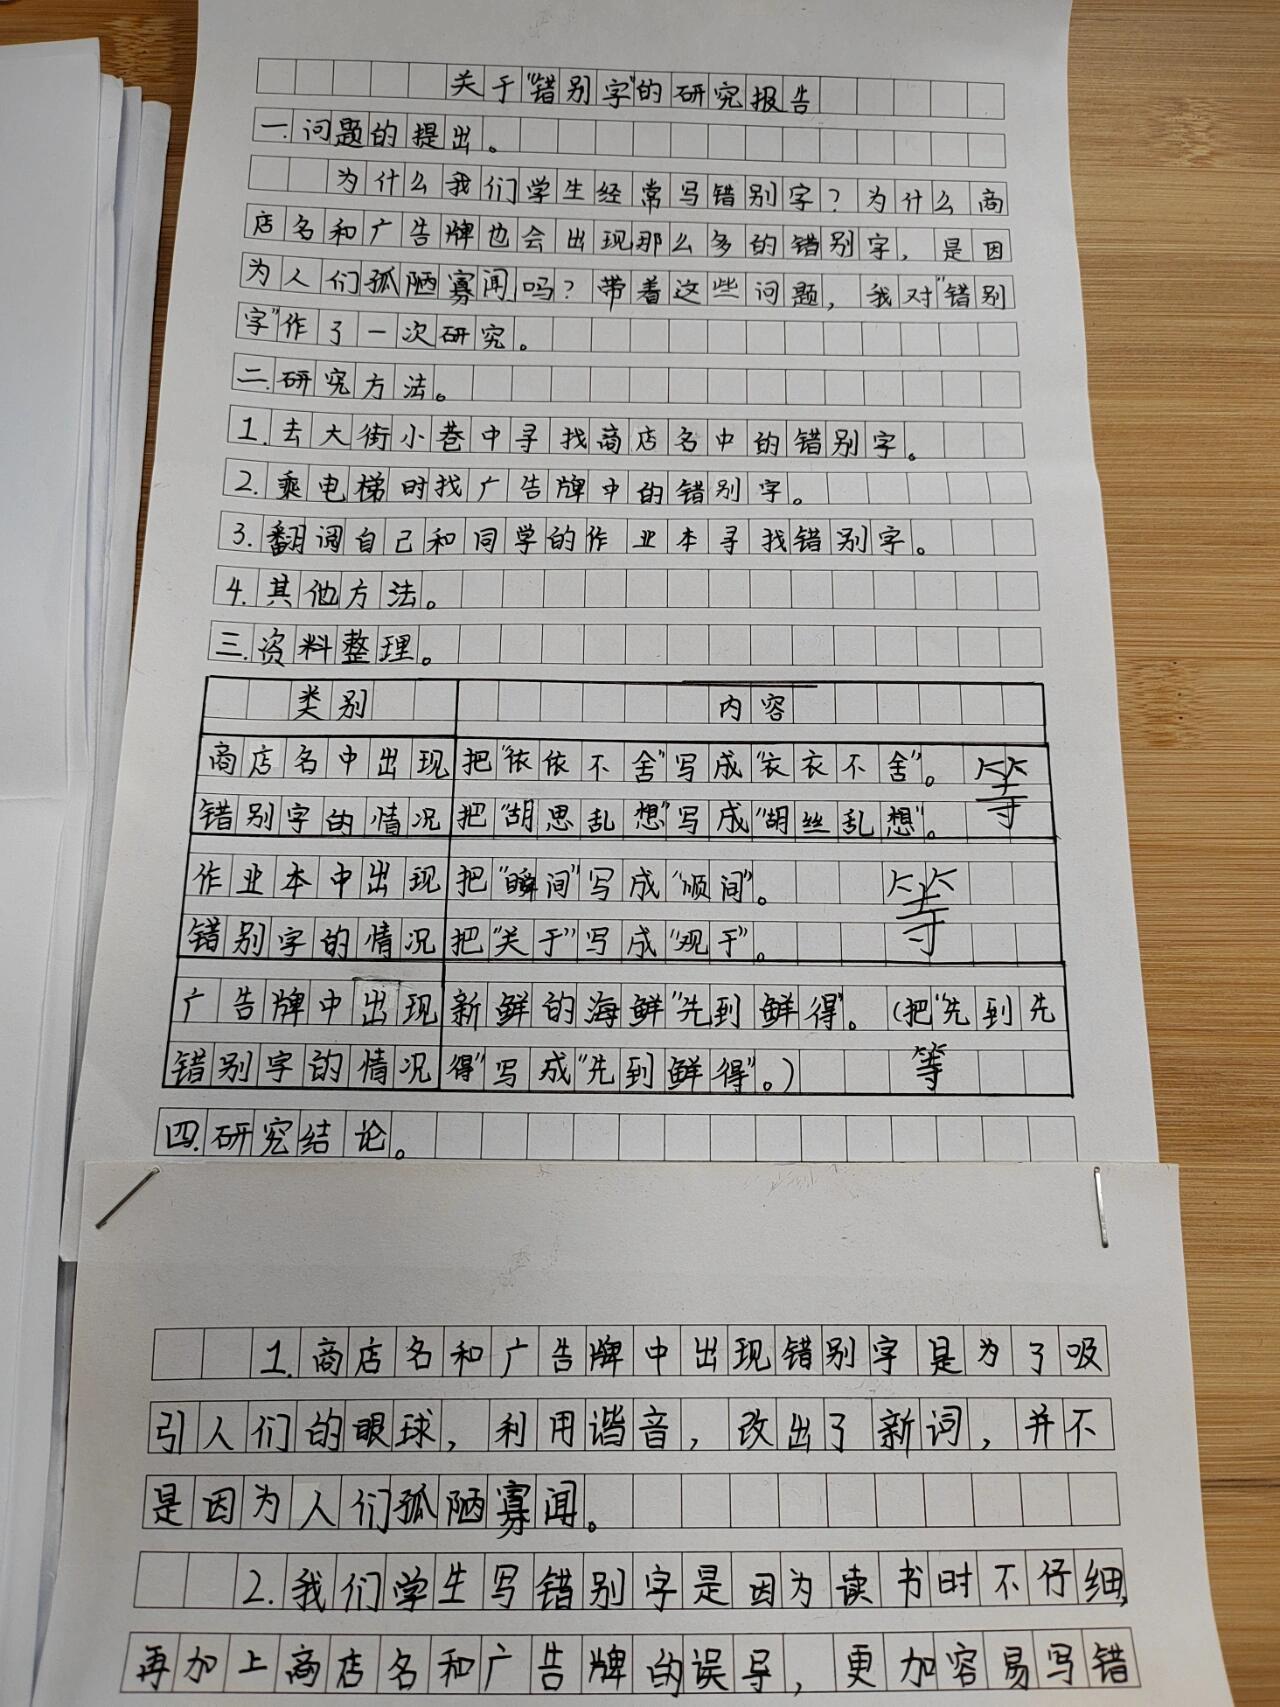 关于“错别字”的研究报告
一.问题的提出。
为什么我们学生经常写错别字?为什么商
店名和广告牌也会出现那么多的错别字,是因
为人们孤陋寡闻吗?带着这些问题,我对“错别
字”作了一次研究。
二.研究方法。
1.去大街小巷中寻找商店名中的错别字。
2.乘电梯时找广告牌中的错别字。
3.翻阅自己和同学的作业本寻找错别字。
4.其他方法。
三.资料整理。
类别 内容
商店名中出现 把“依依不舍”写成“衣衣不舍”。 等
错别字的情况 把“胡思乱想”写成“胡丝乱想”。
作业本中出现 把“瞬间”写成“顺间”。 等
错别字的情况 把“关于”写成“观于”。
广告牌中出现 新鲜的海鲜“先到鲜得”。(把“先到先
错别字的情况 得”写成“先到鲜得”。) 等
四.研究结论。
1.商店名和广告牌中出现错别字是为了吸
引人们的眼球,利用谐音,改出了新词,并不
是因为人们孤陋寡闻。
2.我们学生写错别字是因为读书时不仔细,
再加上商店名和广告牌的误导,更加容易写错